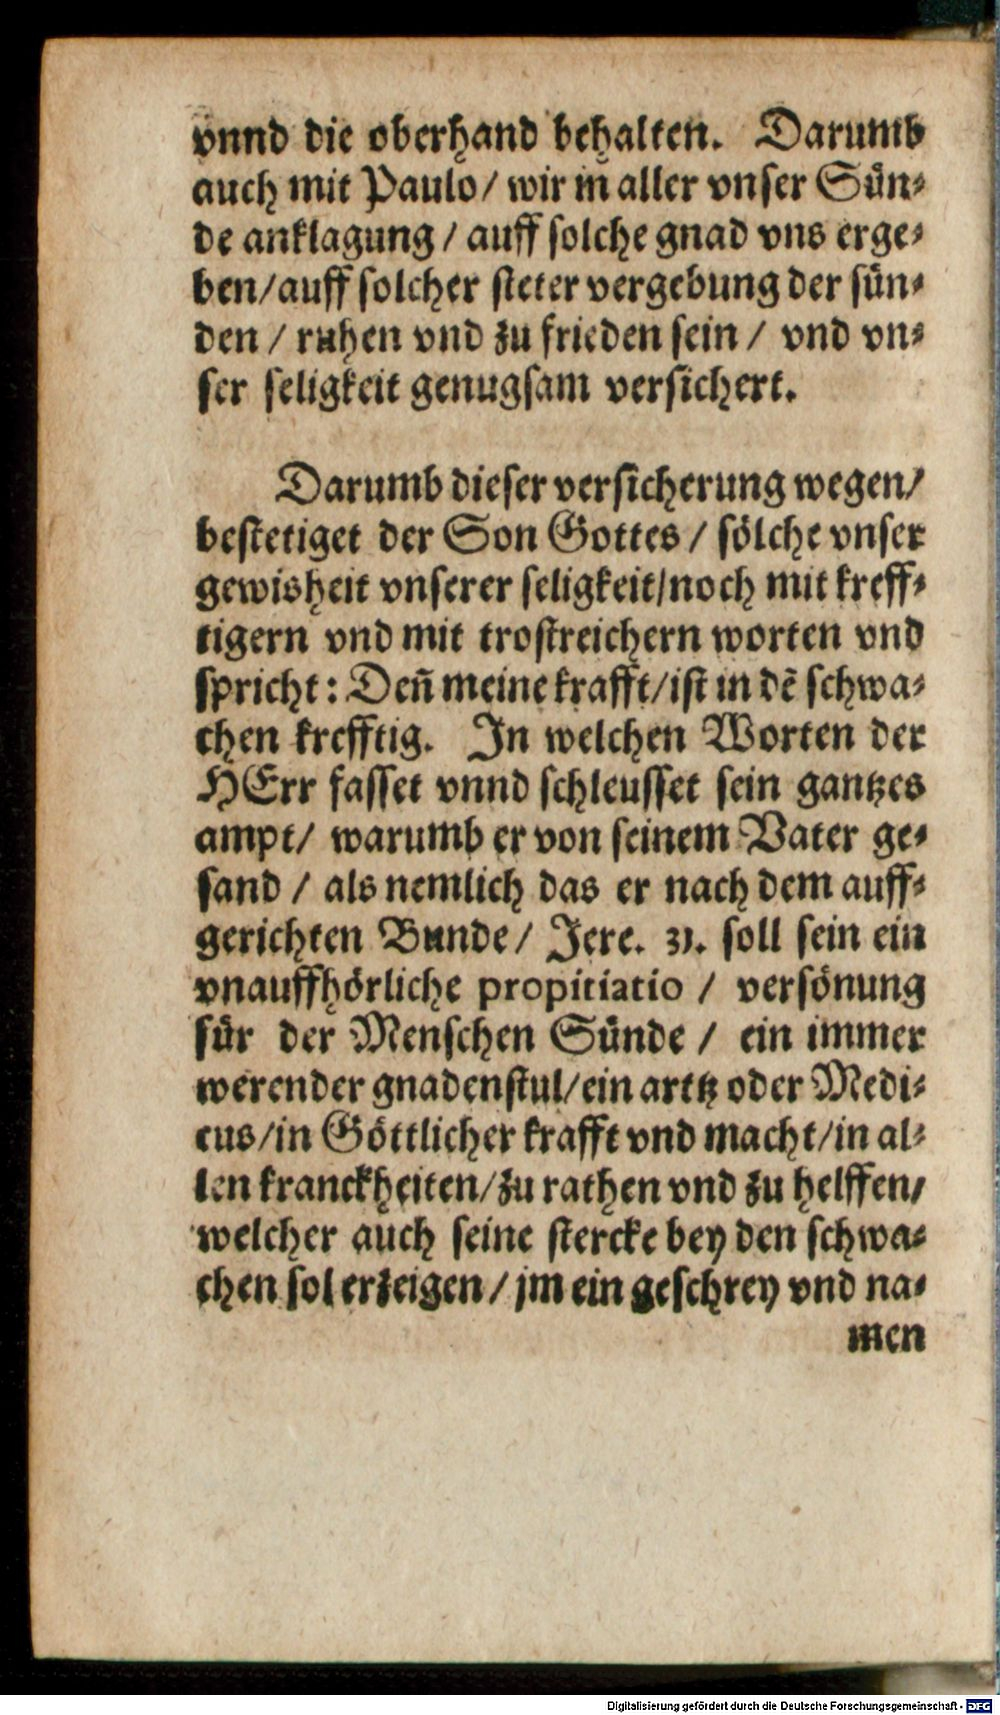 vnnd die oberhand behalten. Darumb
auch mit Paulo/ wir in aller vnser Sün⸗
de anklagung / auff solche gnad vns erge⸗
ben/auff solcher steter vergebung der sün⸗
den / ruhen vnd zu frieden sein / vnd vn⸗
ser seligkeit genugsam versichert.
Darumb dieser versicherung wegen/
bestetiget der Son Gottes / sölche vnser
gewisheit vnserer seligkeit/noch mit kreff⸗
tigern vnd mit trostreichern worten vnd
spricht: Deñ meine krafft/ist in dẽ schwa⸗
chen krefftig. In welchen Worten der
HErr fasset vnnd schleusset sein gantzes
ampt/ warumb er von seinem Vater ge⸗
sand / als nemlich das er nach dem auff⸗
gerichten Bunde/ Jere. 31. soll sein ein
vnauffhörliche propitiatio / versönung
für der Menschen Sünde / ein immer
werender gnadenstul/ein arttz oder Medi⸗
cus/in Göttlicher krafft vnd macht/in al⸗
len kranckheiten/zu rathen vnd zu helffen/
welcher auch seine stercke bey den schwa⸗
chen sol erzeigen / jm ein geschrey vnd na⸗
men
Digitalisierung gefördert durch die Deutsche Forschungsgemeinschaft - DFG